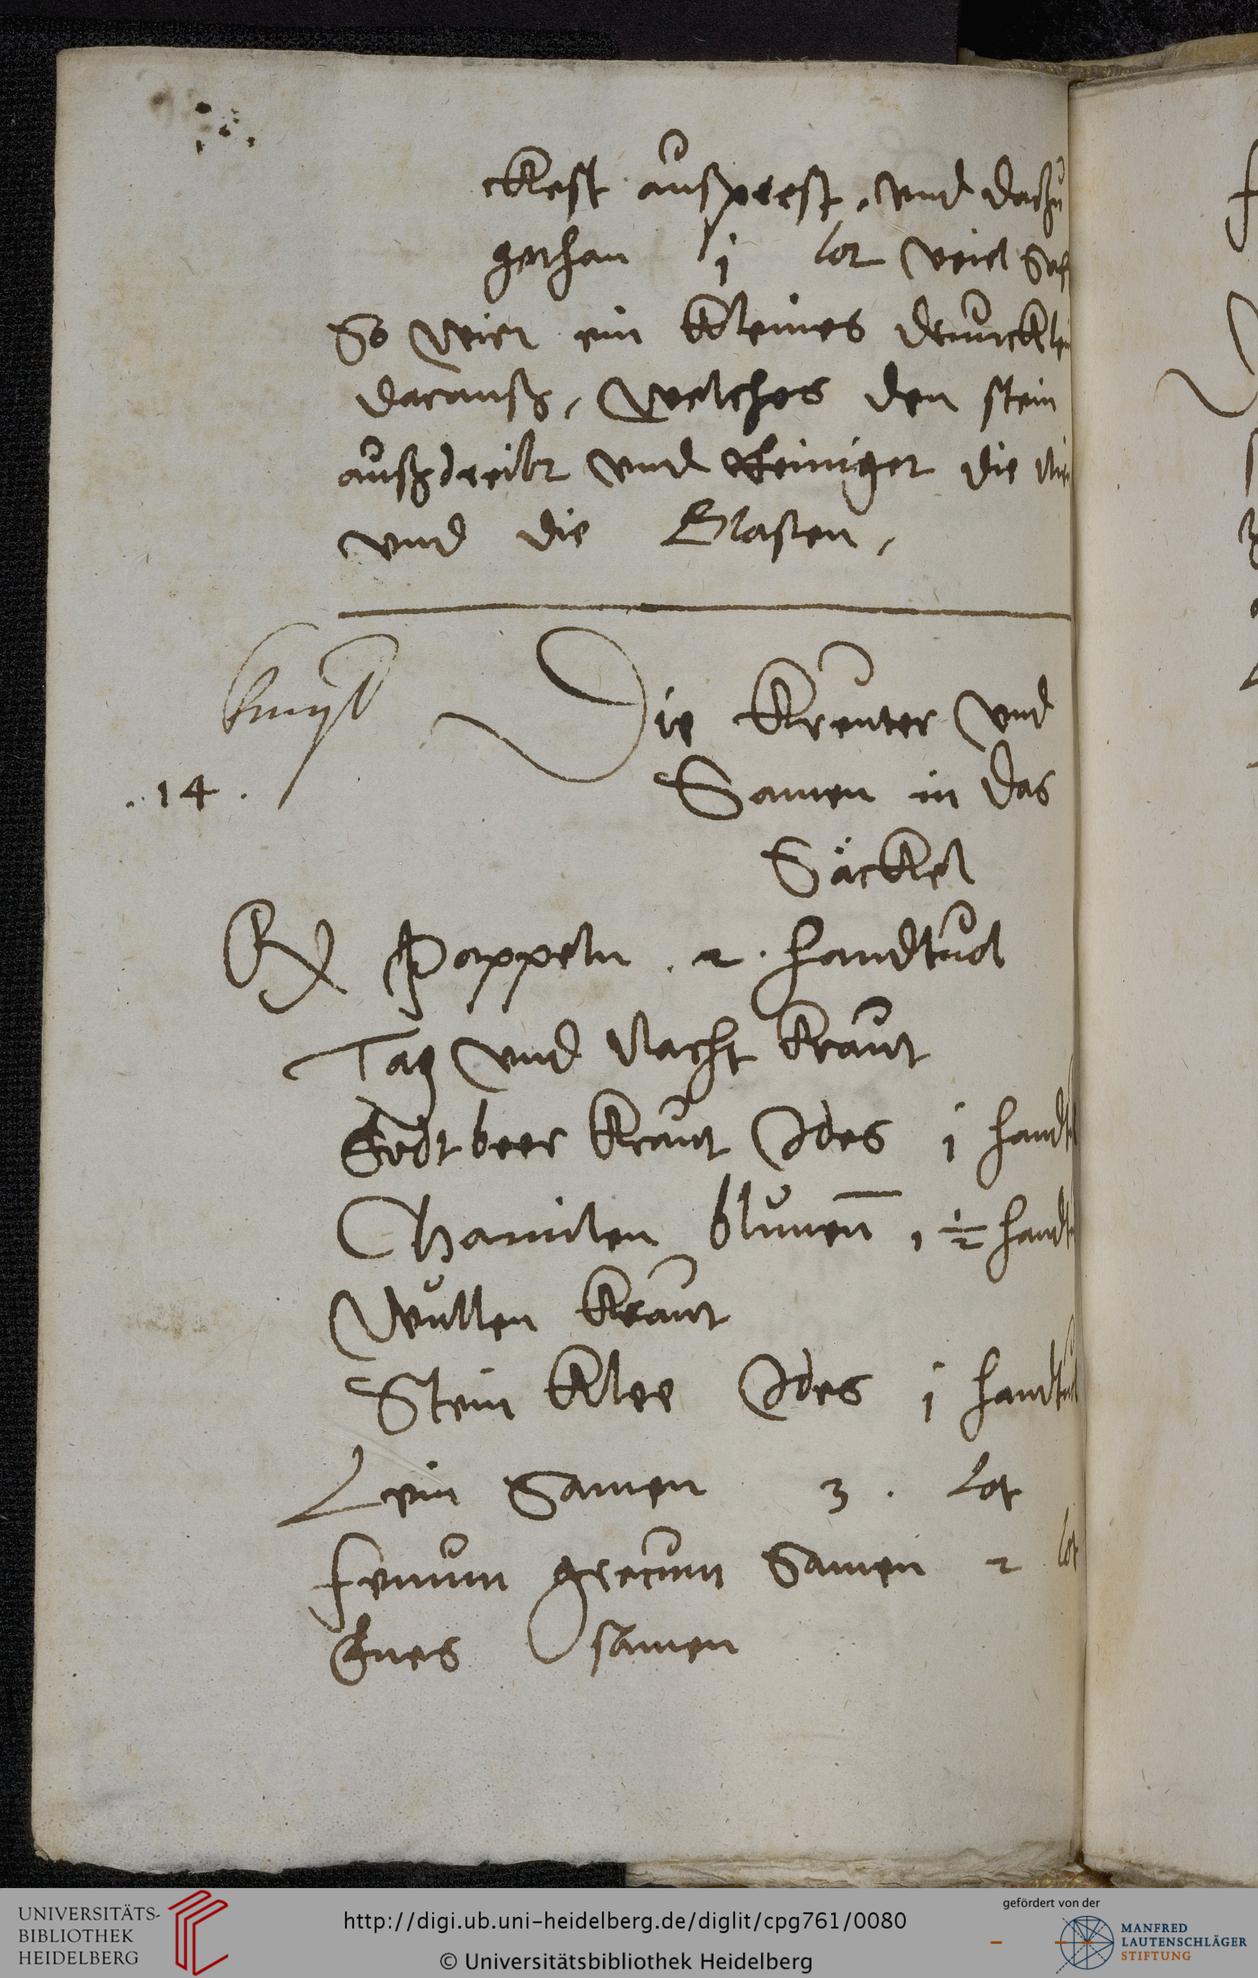 ckest außprest, vnd daßu
gethan j lot veiel Saf
So weirt ein kleines drůnckle
darauß, welches den stein
außdreibt vnd Reiniget die Ni
vnd die Blasen,
Die Kreuter vnd
.14.
Samen in das
Säckel
Rx Pappeln . 2 . handtvol
Tag vnd Nacht Kraut
Erdtbeer Kraut Ides j handt
Chamilen blumen̄ , ½ handt
Wullen Kraut
Stein Klee Ides j handtvol
Lein Samen 3 . Lot
fenum grecum Samen 2 lot
Enes samen
UNIVERSITÄTS-
BIBLIOTHEK
HEIDELBERG
http://digi.ub.uni-heidelberg.de/diglit/cpg761/0080
© Universitätsbibliothek Heidelberg
gefördert von der
MANFRED
LAUTENSCHLÄGER
STIFTUNG